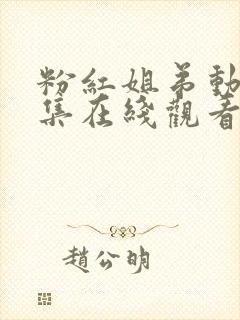 粉紅姐弟動
集在綫觀看
趙公明